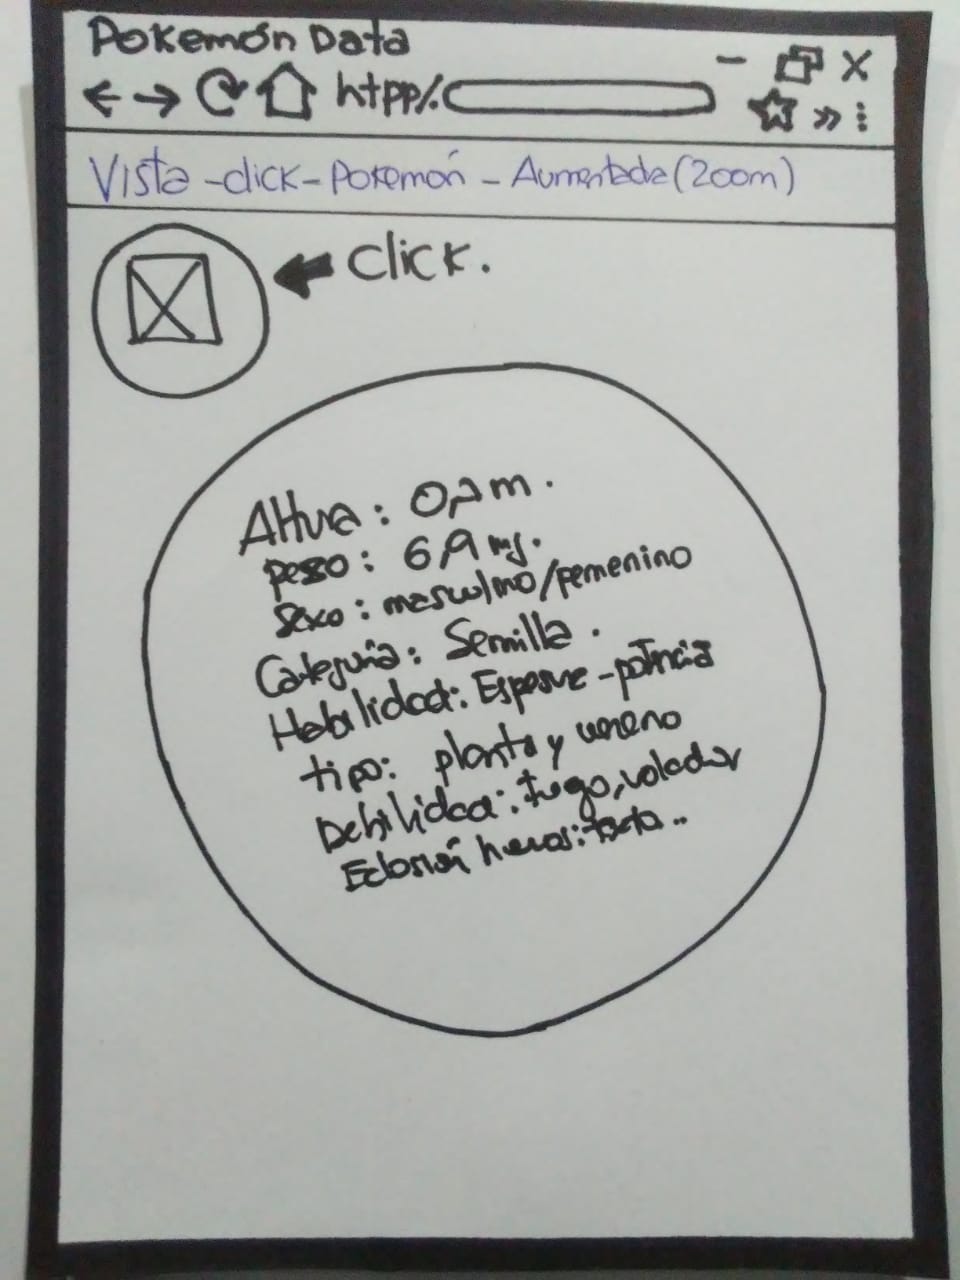 Pokemón Data
htpp/.
Vista-click-Pokemón-Aumentada(Zoom)
click.
Altura: 0,7m.
peso: 6,9 mg.
sexo: masculino/femenino
Categuria: Semilla.
Habilidad: Espesure-potencia
tipo: planta y veneno
Debilidad: fuego, volador
Eclosión huevos: texto..